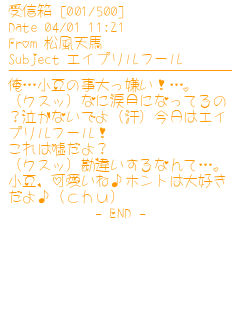 受信箱 [001/500]
Date 04/01 11:21
From 松風天馬
Subject エイプリルフール
俺…小豆の事大っ嫌い！…。
（クスッ）なに涙目になってるの
？泣かないでよ（汗）今日はエイ
プリルフール！
これは嘘だよ？
（クスッ）勘違いするなんて…。
小豆、可愛いね♪ホントは大好き
だよ♪（ｃｈｕ）
- END -